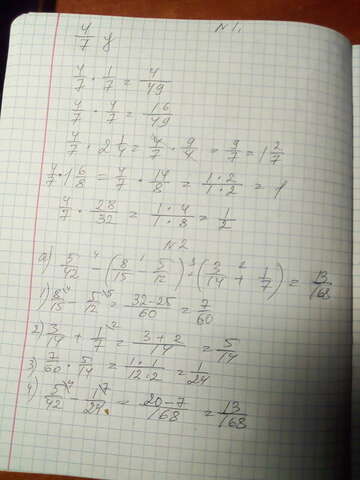 N 1.
4/7 y
4/7 · 1/7 = 4/49
4/7 · 4/7 = 16/49
4/7 · 2 1/4 = 4/7 · 9/4 = 9/7 = 1 2/7
4/7 · 1 6/8 = 4/7 · 14/8 = 1·2/1·2 = 1
4/7 · 28/32 = 1·4/1·8 = 1/2
N 2
a) 5/42 - (8/15 - 5/12) · (3/14 + 1/7) = 13/168
1) 8/15 - 5/12 = 32-25/60 = 7/60
2) 3/14 + 1/7 = 3+2/14 = 5/14
3) 7/60 · 5/14 = 1·1/12·2 = 1/24
4) 5/42 - 1/24 = 20-7/168 = 13/168